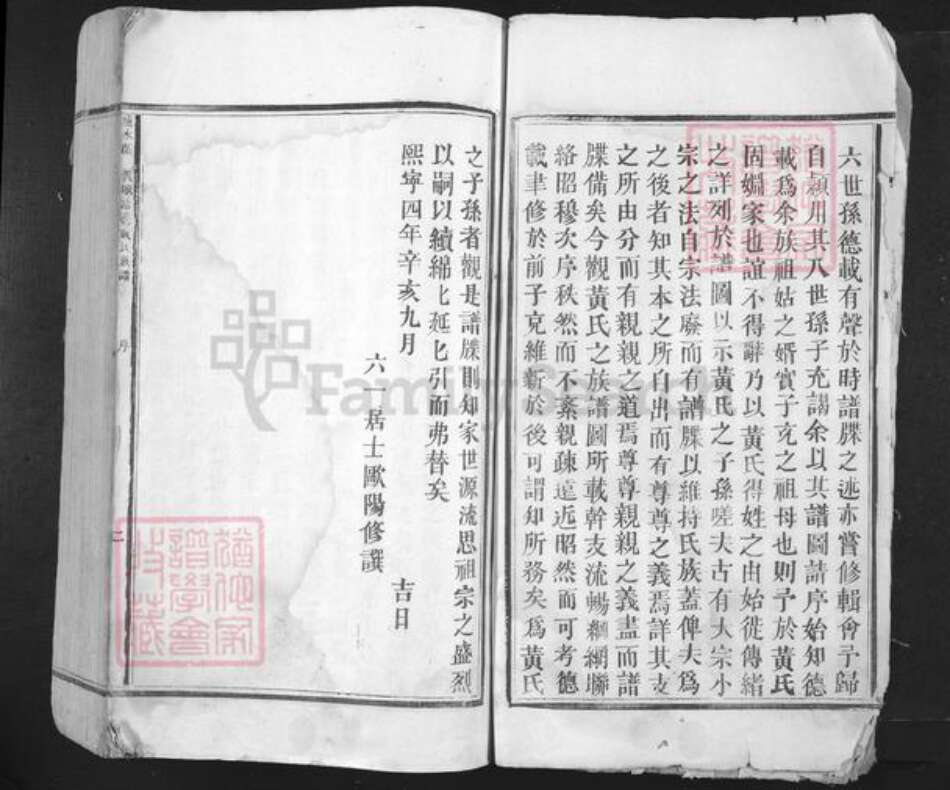 六世孫德載有聲於時譜牒之述亦嘗修輯會予歸
自潁州其八世孫子充謁余以其譜圖請序始知德
載爲余族祖姑之婿實子充之祖母也則予於黃氏
固婣家也誼不得辭乃以黃氏得姓之由始徙傳緒
之詳列於譜圖以示黃氏之子孫嗟夫古有大宗小
宗之法自宗法廢而有譜牒以維持氏族蓋俾夫爲
之後者知其本之所自出而有尊尊之義焉詳其支
之所由分而有親親之道焉尊尊親親之義盡而譜
牒備矣今觀黃氏之族譜圖所載幹支流暢綱網聯
絡昭穆次序秩然而不紊親疎遠近昭然而可考德
載聿修於前子充維新於後可謂知所務矣爲黃氏
之子孫者觀是譜牒則知家世源流思祖宗之盛烈
以嗣以續綿匕延匕引而弗替矣
熙寧四年辛亥九月 吉日
六一居士歐陽修譔
序
二
猶他家
譜學會
技藏
FamilySearch